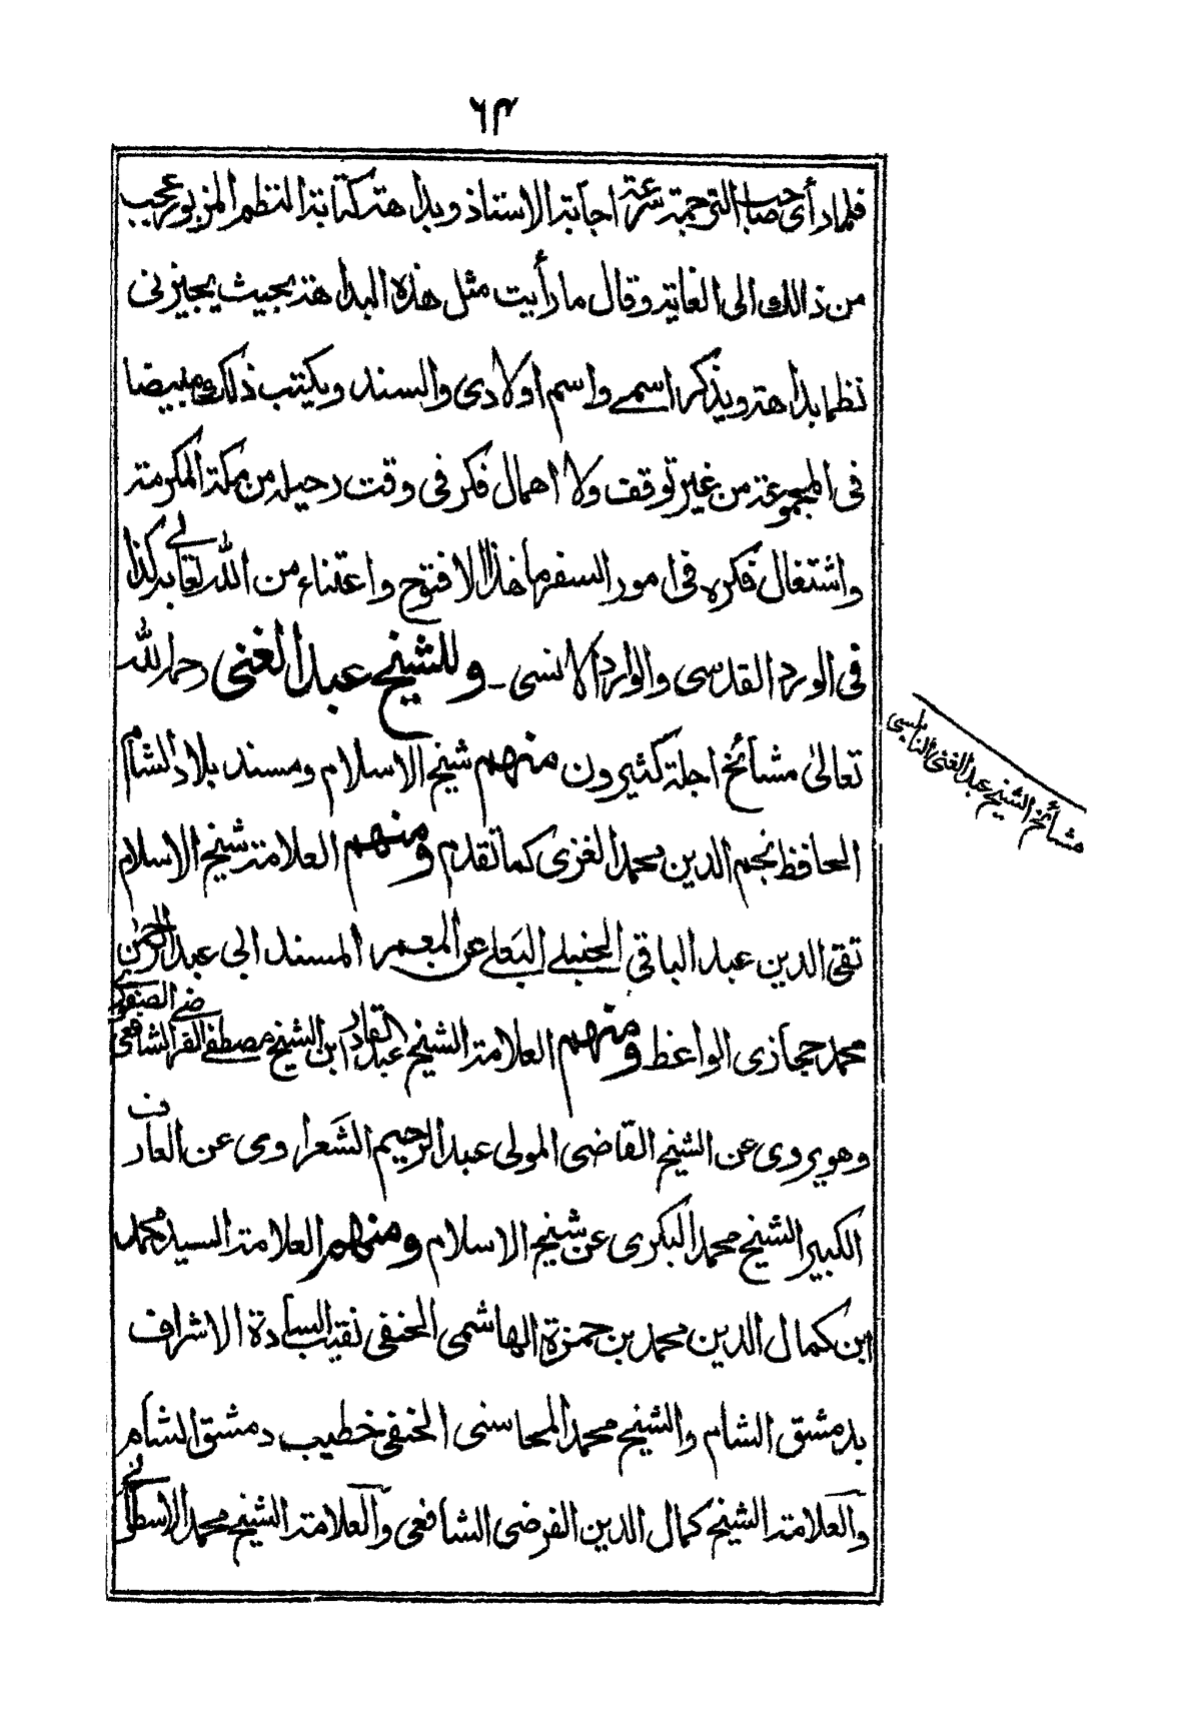 ٦٣
فلما رأى صاحب الترجمة سرعة اجابة الاستاذ وبداهة كتابة النظم المزبور عجب
من ذالك الى الغاية وقال ما رأيت مثل هذه البداهة بحيث يجيزنى
نظما بداهة ويذكر اسمى واسم اولادى والسند ويكتب ذلك مبيضا
فى المجموعة من غير توقف ولا اهمال فكر فى وقت رحيله من مكة المكرمة
واشتغال فكره فى امور السفر ما هذا الا فتوح واعتناء من الله تعالى به كذا
فى الورد القدسى والوارد الانسى ـ وللشيخ عبد الغنى رحمه الله
تعالىٰ مشائخ اجلة كثيرون منهم شيخ الاسلام ومسند بلاد الشام
الحافظ نجم الدين محمد الغزى كما تقدم ومنهم العلامة شيخ الاسلام
تقى الدين عبد الباقى الحنبلى البعلى عن المعمر المسند ابى عبد الرحمن
محمد حجازى الواعظ ومنهم العلامة الشيخ عبد القادر ابن الشيخ مصطفى الفرضى الصفورى الشافعى
وهو يروى عن الشيخ القاضى المولى عبد الرحيم الشعراوى عن العارف
الكبير الشيخ محمد البكرى عن شيخ الاسلام ومنهم العلامة السيد محمد
ابن كمال الدين محمد بن حمزة الهاشمى الحنفى نقيب السادة الاشراف
بدمشق الشام والشيخ محمد المحاسنى الحنفى خطيب دمشق الشام
والعلامة الشيخ كمال الدين الفرضى الشافعى والعلامة الشيخ محمد الاسطوانى
مشائخ الشيخ عبد الغنى النابلسى